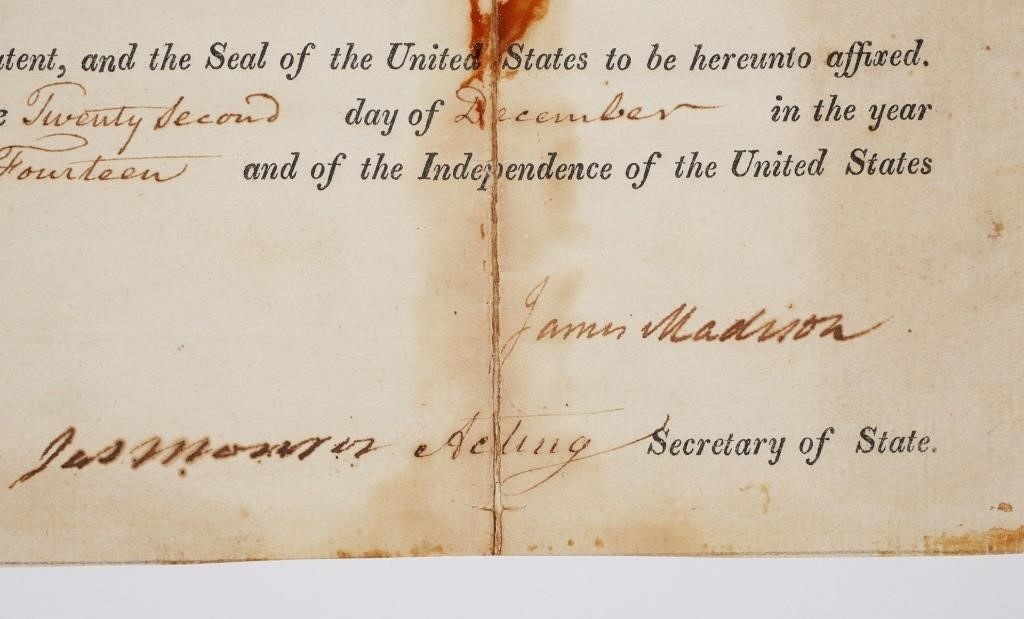 atent, and the Seal of the United States to be hereunto affixed.
e Twenty Second day of December in the year
Fourteen and of the Independence of the United States
James Madison
Jas Monroe Acting Secretary of State.